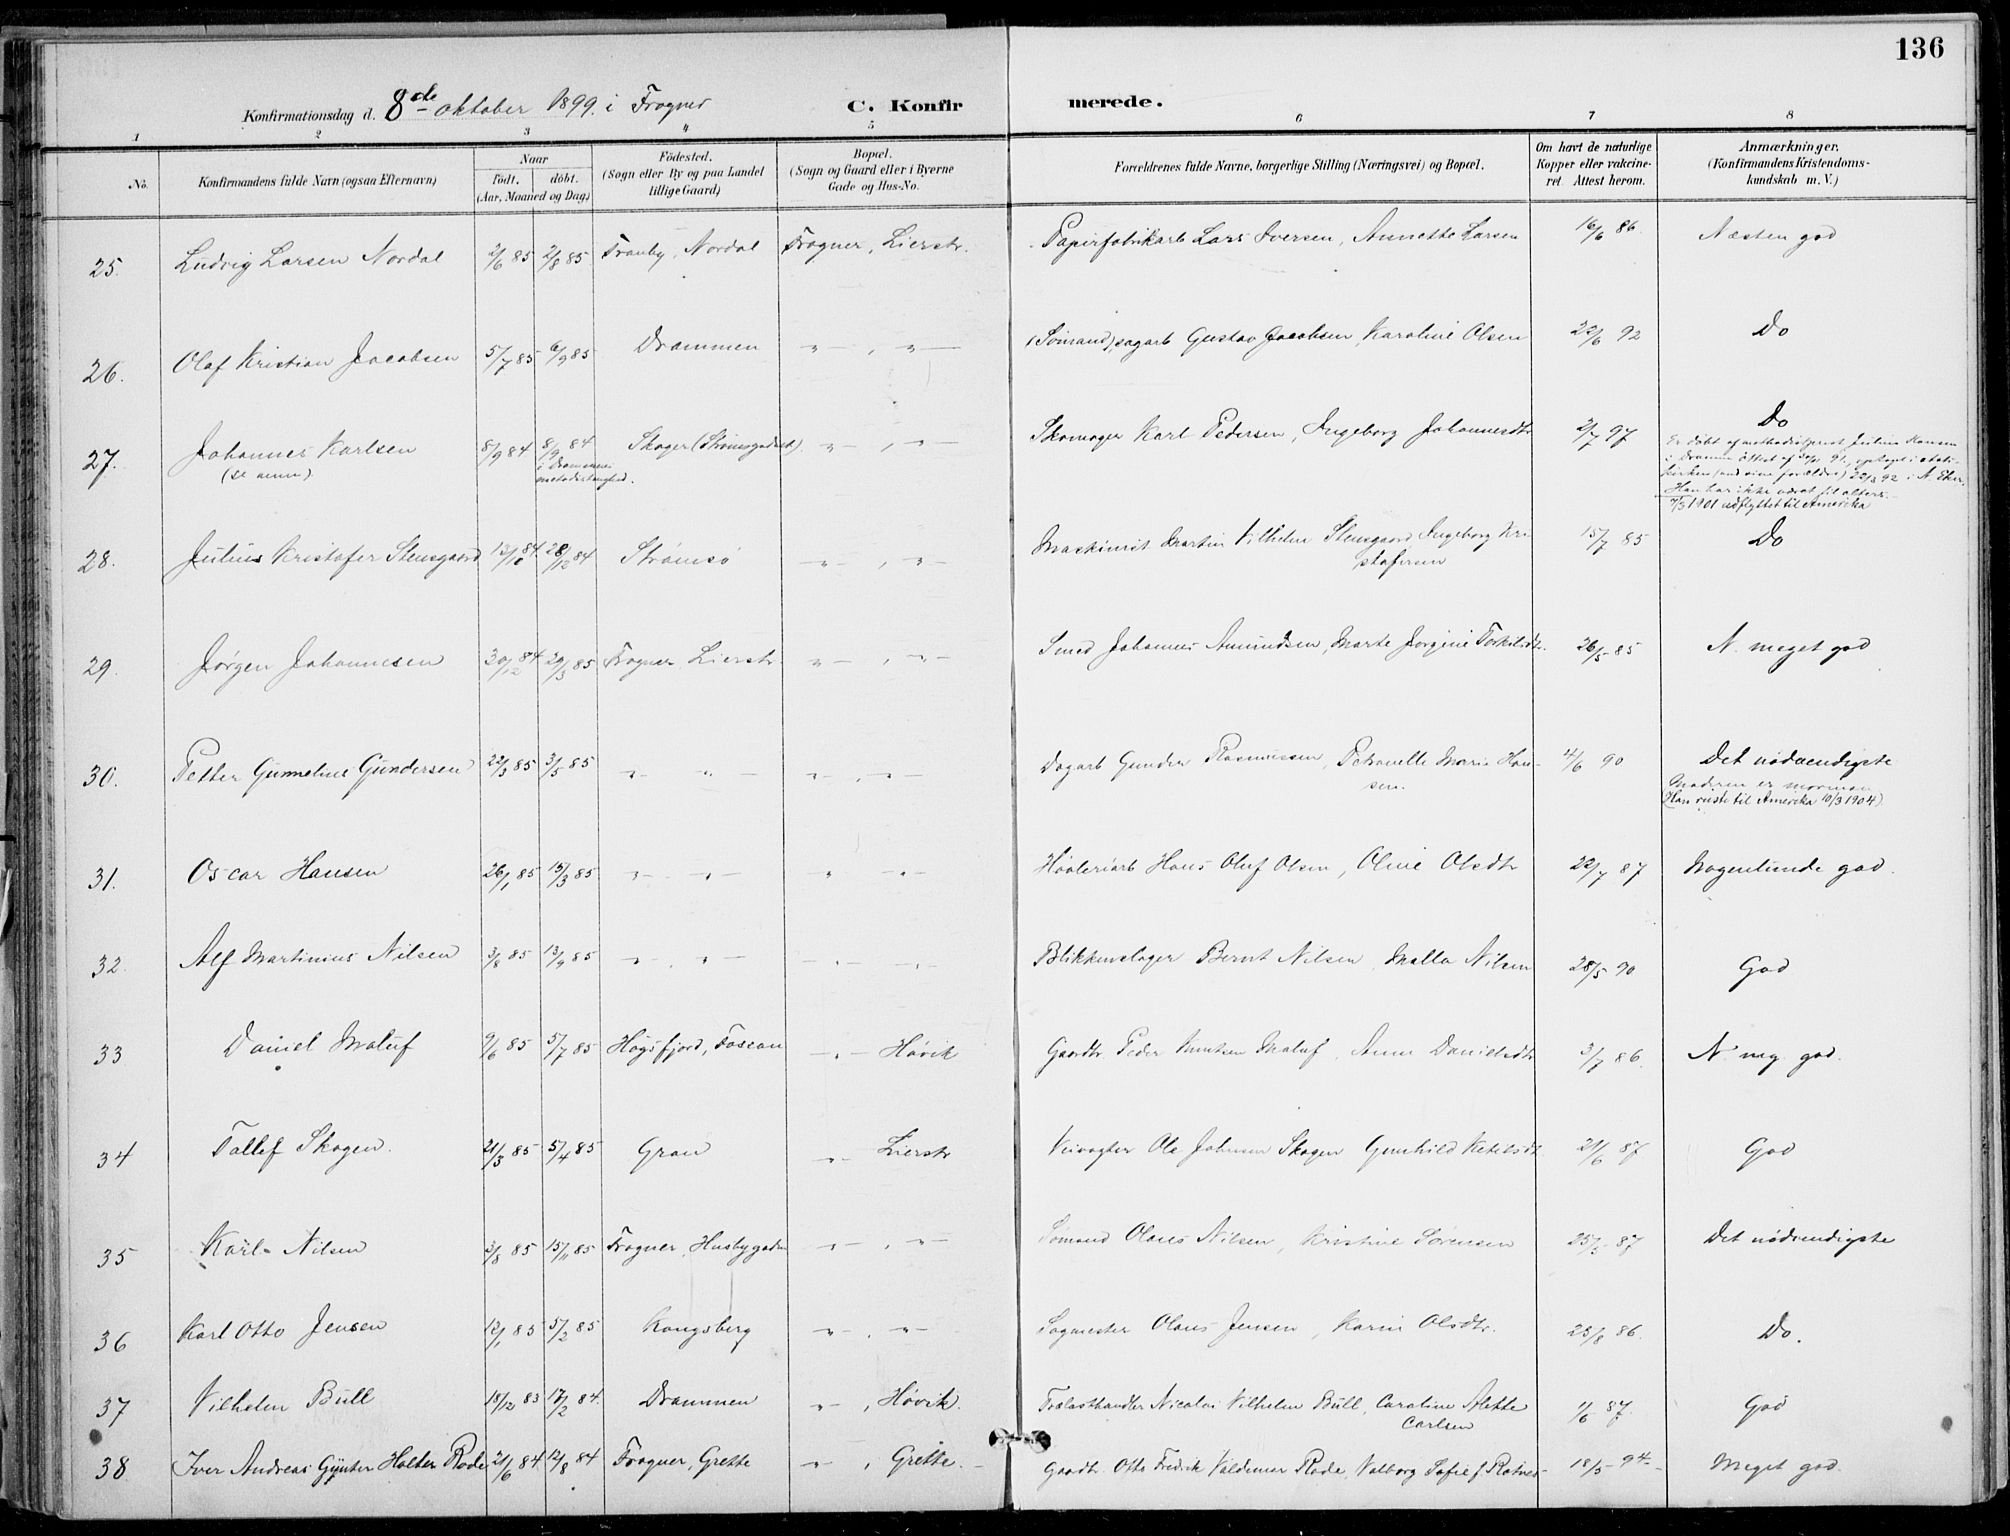 136
Konfirmationsdag d. 8de oktober 1899. i Frogner
C. Konfirmerede.
1 2 3 4 5 6 7 8
No.
Konfirmandens fulde Navn (ogsaa Efternavn)
Naar
Födt. döbt.
(Aar, Maaned og Dag)
Födested.
(Sogn eller By og paa Landet
tillige Gaard)
Bopæl.
(Sogn og Gaard eller i Byerne
Gade og Hus-No.
Forældrenes fulde Navne, borgerlige Stilling (Næringsvei) og Bopæl.
Om havt de naturlige
Kopper eller vakcine-
ret. Attest herom.
Anmærkninger.
(Konfirmandens Kristendoms-
kundskab m.V.)
25. Ludvig Larsen Nordal 2/6 85 2/8 85 Tranby, Nordal Frogner, Lierstr. Papirfabrikarb Lars Iversen, Annette Larsen 16/6 86. Næsten god
26. Olaf Kristian Jacobsen 5/7 85 6/9 85 Drammen " — , " — (Sømand) sagarb Gustav Jacobsen, Karoline Olsen 22/6 92 Do
27. Johannes Karlsen 8/9 84 8/9 84 Skoger (Strømsgodset) " — , " — Skomager Karl Pedersen, Ingeborg Johannesdtr 2/7 97 Do
(se anm)
i Drammens
metodistmenighed.
Er döbt af methodistprest Julius Hansen
i Drammen
kirken (med sine forældre) 22/3 92 i N. Eker.
Han har ikke været til alters.
7/3 1901 udflyttet til Amerika
28. Julius Kristofer Stensgaard 13/10 84 28/12 84 Strømsø " — , " — Maskinist Martin Vilhelm Stensgaard Ingeborg Kri-
stofersen 15/7 85 Do
29. Jørgen Johannesen 30/12 84 29/3 85 Frogner Lierstr " — , " — Smed Johannes Amundsen, Marte Jorgine Torkildsdtr. 26/5 85 N. meget god
30. Petter Gunnelius Gundersen 22/3 85 3/5 85 " — " — " — , " — Dagarb Gunder Rasmussen, Petronelle Marie Han-
sen. 4/6 90 Det nödvendigste
Moderen er mormon
(Han reiste til Amerika 10/3 1904)
31. Oscar Hansen 26/1 85 15/3 85 " — " — " " — Høvleriarb Hans Oluf Olsen, Oline Olsdtr 22/7 87 Nogenlunde god.
32. Alf Martinius Nilsen 3/8 85 13/9 85 " — . " — — " — " Blikkenslager Bernt Nilsen Malla Nilsen 28/5 90 God
33 Daniel Maluf 9/6 85 5/7 85 Høgsfjord, Fossan — " — Høvik Gaardbr. Peder Knutsen Maluf, Anne Danielsdtr 3/7 86. N. meg. god.
34 Tallef Skogen. 21/3 85 5/4 85 Gran " — Lierstr Veivogter Ole Johnsen Skogen Gunhild Ketilsdt. 21/6 87 God
35 Karl Nilsen 3/8 85 15/11 85 Frogner, Husbygaden " — , " — Sømand Olaus Nilsen, Kristine Sørensen 25/5 87 Det nødvendigste
36 Karl Otto Jensen 12/1 85 5/2 85 Kongsberg " — , " — Sagmester Olaus Jensen, Karen Olsdtr. 23/8 86. Do.
37 Vilhelm Bull 18/12 83 17/2 84. Drammen " — , Høvik. Trælasthandler Nicolai Vilhelm Bull, Caroline Alette
Carlsen 1/6 87. God
38 Iver Andreas Gynter Holter Rode 21/6 84. 12/8 84 Frogner, Grette " — , Grette. Gaardbr. Otto Fredrik Valdemar Rode, Valborg Sofie f. 18/5 94 Meget god.